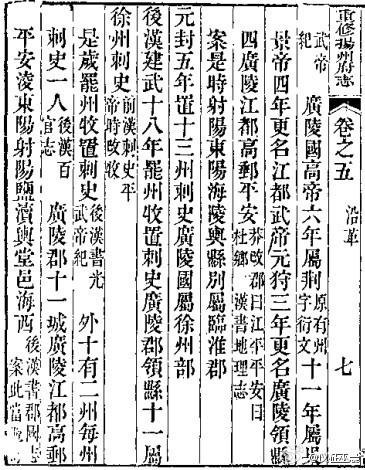 重修揚州府志 卷之五 沿革 七
武帝紀 廣陵國高帝六年屬荆原有州字衍文十一年屬吳
景帝四年更名江都武帝元狩三年更名廣陵領縣
四廣陵江都高郵平安莽改郡曰江平平安曰杜鄉 漢書地理志
案是時射陽東陽海陵輿縣別屬臨淮郡
元封五年置十三州刺史廣陵國屬徐州部
後漢建武十八年罷州牧置刺史廣陵郡領縣十一屬
徐州刺史前漢刺史平帝時改牧
是歲罷州牧置刺史後漢書光武帝紀 外十有二州每州
刺史一人後漢百官志 廣陵郡十一城廣陵江都高郵
平安淩東陽射陽鹽瀆輿堂邑海西後漢書郡國志 案此當